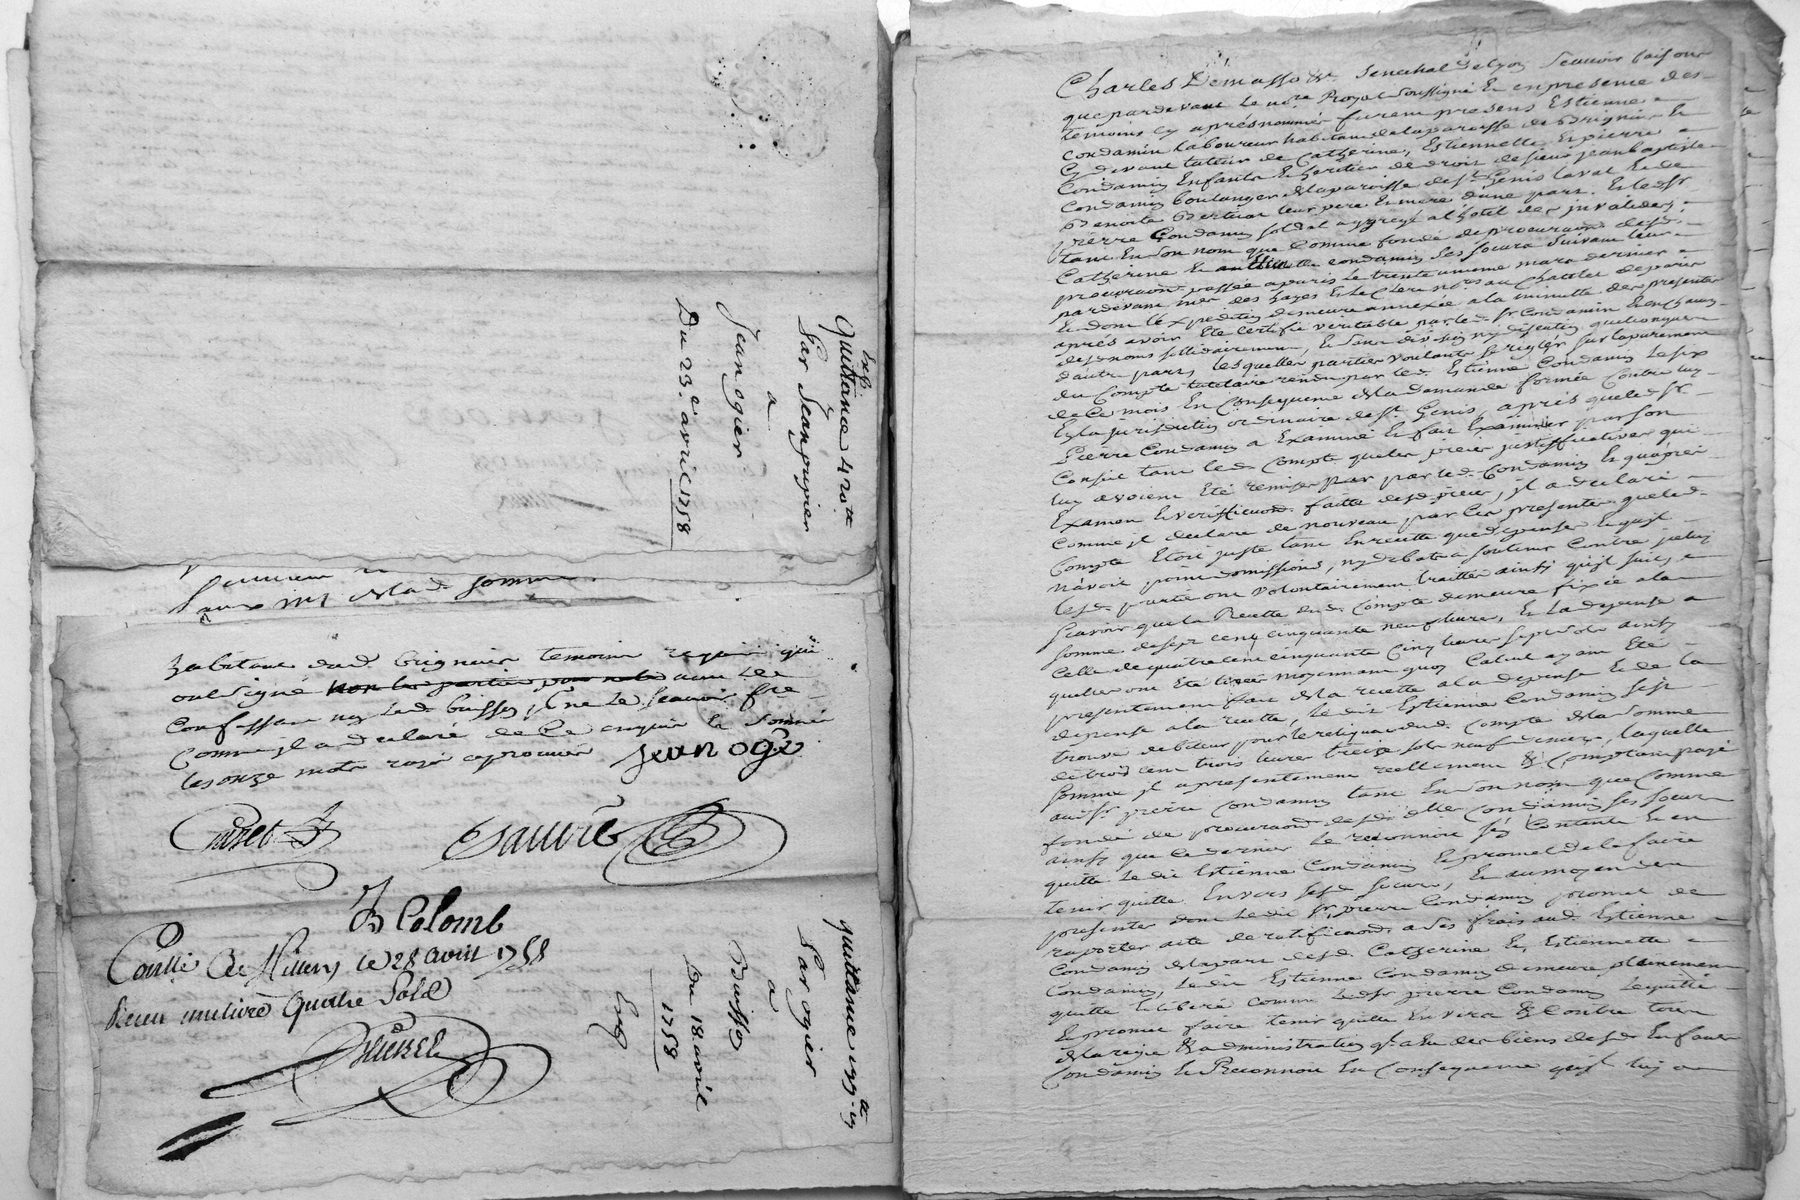 Exp.
Quittance 420tt
Par Jean pupier
a
Jean ogier
Du 23e. avril 1758
habitans dud. brignais temoins requis qui
ont signé non les parties pour ne le avec led.
confessant ny led. buisson pour ne le scavoir fre
comme il a declaré de ce enquis le sommé
les onze mots rayé aprouvés jean ogie
B Colomb
Conllé a Millery le 28 avril 1758
Receu une livre quatre sols
quittance
Par ogier
a
Buisson
Du 18 avril
1758
Exp
Charles Demasso &c. senechal de lyon scavoir faisons
que pardevant le no.re Royal soussigné et en presence des
temoins cy aprés nommés furent presens Estienne
Condamin laboureur habitant de la paroisse de Brignais et
cy devant tuteur de Catherine, Estiennette et pierre
Condamin enfants et heritiers de droit de sieur jean baptiste
Condamin boulanger de la paroisse de st. Genis laval et de
Benoite leur pere et mere d'une part. Et led. sr.
pierre Condamin soldat aggregé a l'hotel des invalides
tant en son nom que comme fondé de procuration desd.
Catherine et Condamin ses soeurs suivant leur
procuration passée a paris le trente unieme mars dernier
pardevant mes. des hayes et le Clerc no.res au Chatelet de paris
et dont l'expedition demeure annexée a la minutte des presentes
aprés avoir eté certifié veritable par led. sr. Condamin et en chacun
desd. noms sollidairement, et sans division ny discution quelconques
d'autre part, lesquelles parties voulants se regler sur l'apurement
du compte tutelaire rendu par led. Estienne Condamin le six
de ce mois en consequence de la demande formée contre luy
en la jurisdiction ordinaire de st. Genis, aprés que led. sr.
Pierre Condamin a examiné et fait examiner par son
Conseil tant led. compte que les pieces justifficatives qui
luy avoient eté remises par led. Condamin et qu'aprés
examen et veriffication faitte desd. pieces, il a declaré
comme il declare de nouveau par ces presentes que led.
compte etoit juste tant en recette que depense et qu'il
n'avoit point d'omissions, ny debats a soutenir contre iceluy
lesd. parties ont volontairement traitté ainsy qu'il suit,
scavoir que la Recette dud. compte demeure fixée a la
somme de sept cens cinquante neuf livres, et la depense a
celle de quatre cens cinquante cinq livres sept sols ainsy
qu'elles ont eté moyennant quoy calcul ayant eté
presentement fait de la recette a la depense et de la
depense a la recette, le dit Estienne Condamin s'est
trouvé debiteur pour le reliqua dud. compte de la somme
de trois cens trois livres treize sols neuf deniers, laquelle
somme il a presentement reellement & comptant payé
aud. sr. pierre Condamin tant en son nom que comme
fondé de procuration desd. dlles. Condamin ses soeurs
ainsy que ce dernier le reconnoit s'en contente et en
quitte le dit Estienne Condamin et promet de le faire
tenir quitte envers sesd. soeurs, et au moyen des
presentes dont le dit sr. pierre Condamin promet de
raporter acte de ratification a ses frais aud. Estienne
Condamin de la part desd. Catherine et Estiennette
Condamin, le dit Estienne Condamin demeure pleinement
quitte et liberé comme led. sr. pierre Condamin le quitte
et promet faire tenir quitte envers & contre tous
de la regie & administration qu'il a eu des biens desd. enfants
Condamin et Reconnoit en consequence qu'il luy a